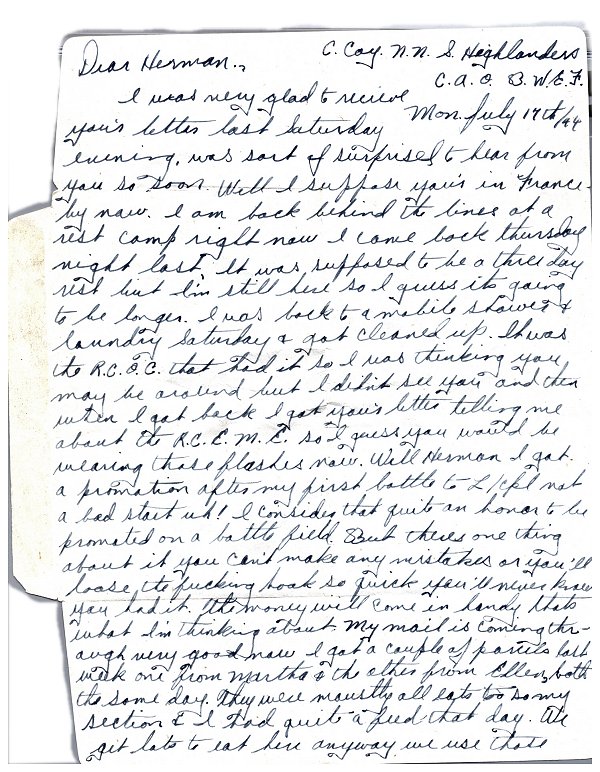 Dear Herman.,
C. Coy. N.N.S. Highlanders
C.A.O. B.W.E.F.
Mon. July 17th/44
I was very glad to recieve
your's letter last Saturday
evening, was sort of surprised to hear from
you so soon. Well I suppose your's in France
by now. I am back behind the lines at a
rest camp right now I came back thursday
night last. It was supposed to be a three day
rest but I'm still here so I guess its going
to be longer. I was back to a mobile shower &
laundry Saturday & got cleaned up. It was
the R.C.O.C. that had it so I was thinking you
may be around but I didn't see you and then
when I got back I got your's letter telling me
about the R.C.E.M.E. so I guess you would be
wearing those flashes now. Well Herman I got
a promotion after my first battle to L/Cpl not
a bad start uh! I consider that quite an honor to be
promoted on a battle field. But theres one thing
about it you can't make any mistakes or you'll
loose the fucking hook so quick you'll never know
you had it. The money will come in handy thats
what I'm thinking about. My mail is coming thr-
ough very good now I got a couple of parcels last
week one from Martha & the other from Ellen, both
the same day. They were moustly all eats, too so my
section & I had quite a feed that day. We
get lots to eat here anyway, we use those